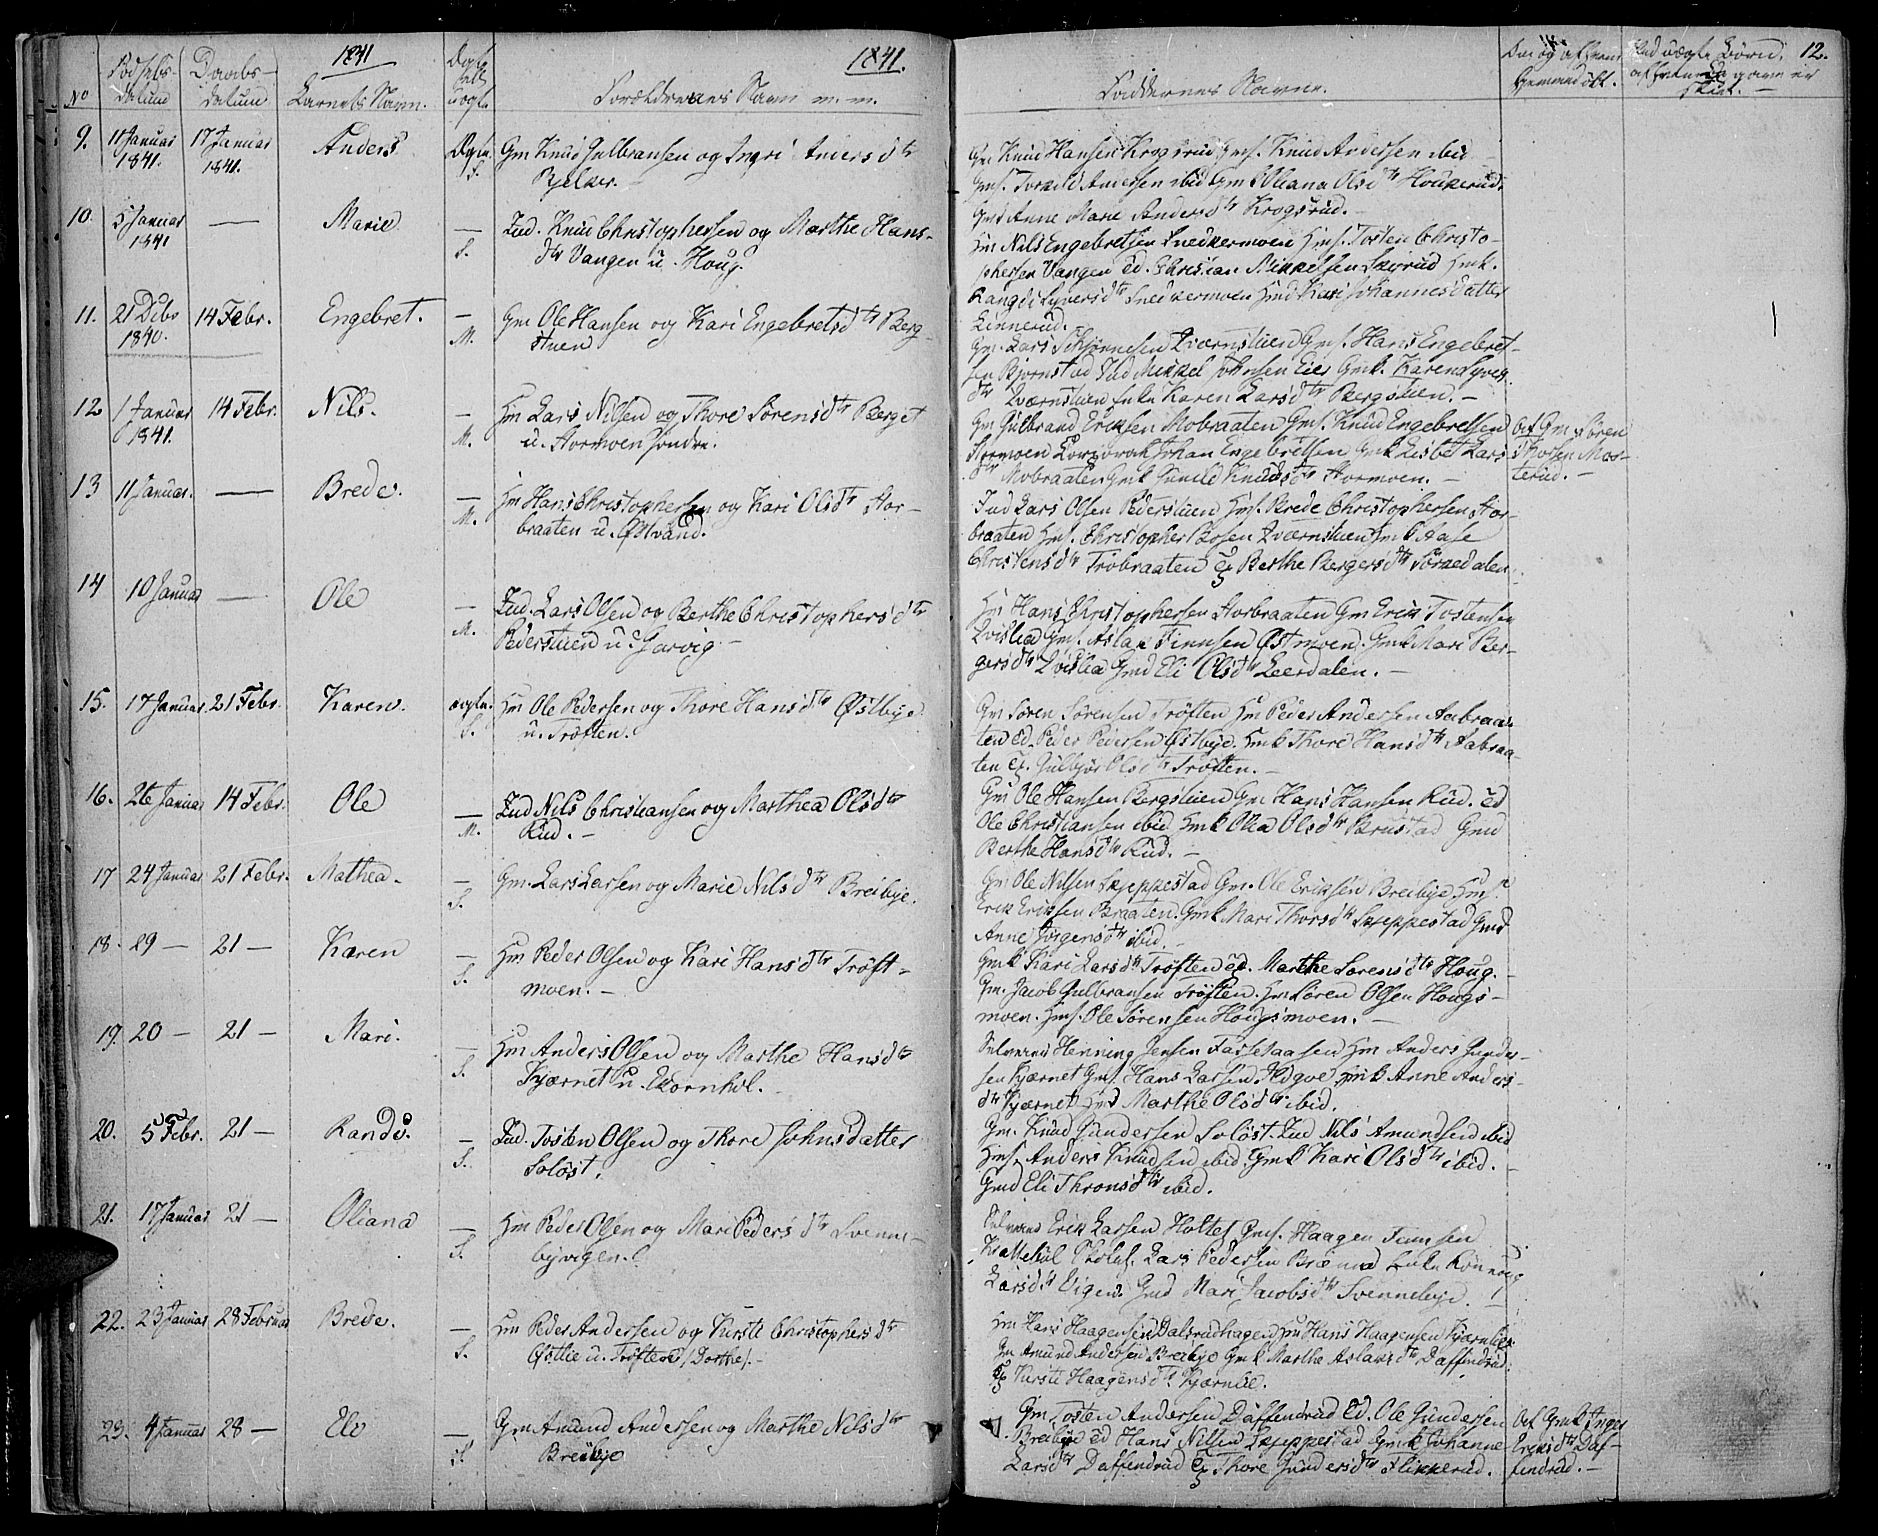 1841
1841.
12.
No
Fødsels-
datum
Daabs-
datum
Barnets Navn.
Ægte
uægte
Forældrenes Navn m. m.
Faddernes Navne.
9. 11 Januar 1841. 17 Januar 1841. Anders Ægte. S.
Gm Knud Gulbransen og Ingri Andersdtr
Bjelker.
Gm Knud Hansen Krogsrud Gmf. Knud Andersen ibid
Gmf. Torkild Andersen ibid Gmk Oliana Olsdtr Houkerud.
Gmd Anne Marie Andersdtr Krogsrud.
10. 5 Januar 1841 — Marie — S.
Ind. Knud Christophersen og Marthe Hans-
dtr Vangen u. Houg.
Hm Nils Engebretsen Snedkermoen Hmf. Tosten Christo-
phersen Vangen Ed. Christian Mikkelsen Skjørud Hmk.
Rangdi Syversdtr Snedkermoen Hmd Kari Johannesdatter
Linnerud.
11. 21 Debr 1840. 14 Febr. Engebret. — M.
Gm Ole Hansen og Kari Engebretsdtr Berg-
stuen
Gm. Lars Kværnstuen Gmf. Hans Engebret-
sen Bjørnstad Ind Mikkel Johnsen Eier Gmk. Karen Syvers
dtr Kværnstuen Enke Karen Larsdtr Bergstuen. —
12 1 Januar 1841. 14 Febr. Nils. — M.
Hm Lars Nilsen og Thore Sørensdtr Berget
u. Stormoen søndre.
Gm Gulbrand Eriksen Mobraaten Gm. Knud Engebretsen
Stormoen Johan Engebretsen Gmk Lisbet Lars
dtr Mobraaten Gmk Gunild Knudsdtr Stormoen. —
Gm Søren
Thorsen Mos-
terud. —
13 11 Januar. — Brede. — M.
Hm Hans Christophersen og Kari Olsdtr Stor-
braaten u. Østvand.
Ind Lars Olsen Pederstuen Hmf. Brede Christophersen Stor-
braaten Hmf. Christopher Boesen Kværnstuen Hmk Aase
Christensdtr Trobraaten Berthe Bergersdtr Sørkedalen.
14 10 Januar — Ole — M.
Ind. Lars Olsen og Berthe Christophersdtr
Pederstuen u. Garvig —
Hm Hans Christophersen Storbraaten Gm Erik Tostensen
Kvislia Gmf. Aslak Finnsen Østmoen. Gmk Mari Ber-
gersdtr Kvislia Gmd Eli Olsdtr Leerdalen. —
15. 17 Januar 21 Febr. Karen. ægte. S.
Hm Ole Pedersen og Thore Hansdtr Østbye
u. Trøften.
Gm Søren Sørensen Trøften Hm Peder Andersen Aabraa-
ten Ed. Peder Pedersen Østbye. Hmk Thore Hansdtr Aabraa-
ten Gulbjør Olsdtr Trøften. —
16. 26 Januar 14 Febr. Ole — M.
Ind Nils Christiansen og Marthea Olsdtr
Rud. —
Gm Ole Hansen Bergstuen Gm Hans Hansen Rud. Ed
Ole Christiansen ibid Hmk Olia Olsdtr Brustad Gmd
Berthe Hansdtr Rud. —
17 24 Januar 21 Febr. Mathea. — S.
Gm. Lars Larsen og Marie Nilsdtr Breibye.
Gm Ole Nilsen Skjeppestad Gm. Ole Eriksen Breibye Hmf.
Erik Eriksen Braaten. Gmk Mari Thorsdtr Skjeppestad Gmd
Anne Jørgensdtr ibid. —
18. 29 — 21 — Karen — S.
Hm Peder Olsen og Kari Hansdtr Trøft-
moen. —
Gmk Kari Larsdtr Trøften Marthe Sørensdtr Houg. —
Gm. Jacob Gulbransen Trøften. Hm Søren Olsen Hougs-
moen. Hmf. Ole Sørensen Hougsmoen. —
19. 20 — 21 — Mari. — S.
Hm Anders Olsen og Marthe Hansdtr
Kjærnet u. Ekornhol.
Selveier Henning Jensen Hm Anders Gunder-
sen Kjærnet Gmf. Hans Larsen Gmk Anne Anders-
dtr Kjærnet Hmd Marthe Olsdtr ibid.
20. 5 Febr. 21 — Randi. — S.
Ind. Tosten Olsen og Thore Johnsdatter
Soløst.
Gm. Knud Gundersen Soløst. Ind Nils Amundsen ibid
Hmf. Anders Knudsen ibid. Gmk Kari Olsdtr ibid. —
Gmd Eli Thronsdtr ibid.
21. 17 Januar 21 — Oliana — S.
Hm Peder Olsen og Mari Pedersdtr Svenne-
byvigen.
Selveier Erik Larsen Holtet Gmf. Haagen Finnsen
Krattehol Lars Pedersen Enke Rønnoug
Larsdtr Vigen. Gmd Mari Jacobsdtr Svennebye.
22. 23 Januar 28 Februar Brede. — S.
Hm Peder Andersen og Kirsti Christophersdtr
Østlie u. Trøften /Dorthe/. —
Hm Hans Haagensen Dalsrudhagen Hm Hans Haagensen Kjærnlie.
Gm Amund Andersen Breibye Gmk Marthe Aslaksdtr Daffindrud.
Kirsti Haagensdtr Kjærnlie.
23. 4 Januar 28 — Eli — S.
Gm Amund Andersen og Marthe Nilsdtr
Breibye
Gm Tosten Andersen Daffendrud Ed. Ole Gundersen
Breibye Ed Hans Nilsen Skjeppestad Gmk Johanne
Larsdtr Daffendrud Thore Gundersdtr Flikkerud.
Gmk Inger
Eriksdtr Daf-
fendrud. —